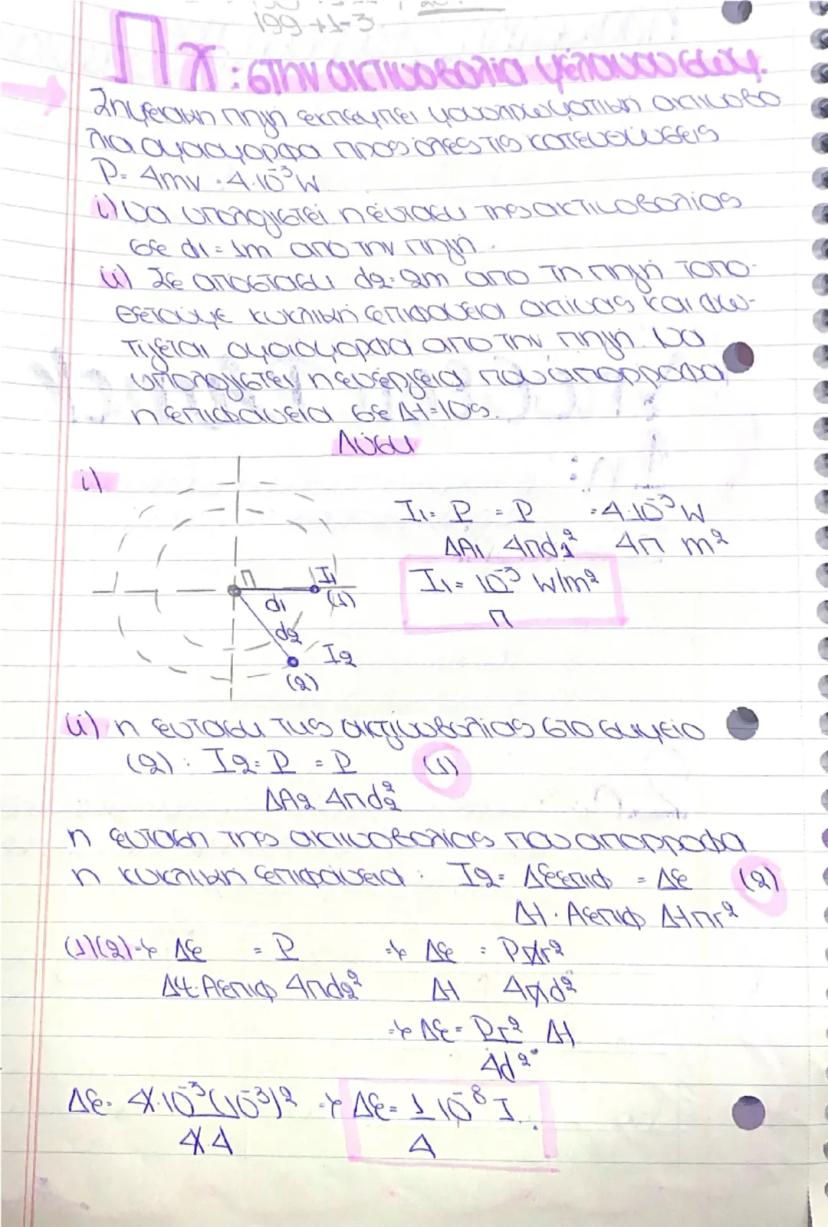 199+1-3
Πχ: στην ακτινοβολία μέλανου σωμ.
Σημειακη πηγή εκπεμπει μονοχρωματικη ακτινοβο
λια ομοιομορφα προς όλες τις κατευθύνσεις
P= 4mw = 4·10⁻³W
i) Να υπολογιστεί η ένταση της ακτινοβολίας
σε d1 = 1m από την πηγή.
ii) Σε αποσταση d2=2m απο τη πηγή τοπο-
θετούμε κυκλική επιφάνεια ακτίνας και φω-
τίζεται ομοιομορφα από την πηγή. Να
υπολογιστεί η ενέργεια που απορροφα
η επιφάνεια σε Δt=10s.
Λύση
i)
I₁= P = P = 4·10⁻³ W
ΔA₁ 4πd₁² 4π m²
I₁ = 10⁻³ W/m²
π
Π I₁
d1 (1)
d2 I2
(2)
ii) η ένταση της ακτινοβολίας στο σημείο
(2): I2= P = P (1)
ΔA2 4πd₂²
η ένταση της ακτινοβολίας που απορροφα
η κυκλική επιφάνεια: I2= Δεεπιφ = Δε (2)
Δt·Αεπιφ Δtπr²
(1)(2)→ Δε = P → Δε = Pπr²
Δt·Αεπιφ 4πd₂² Δt 4πd²
→ Δε = Pr² Δt
4d²
Δε= 4·10⁻³(10⁻³)² → Δε= 1 10⁻⁸ J.
4 4 4